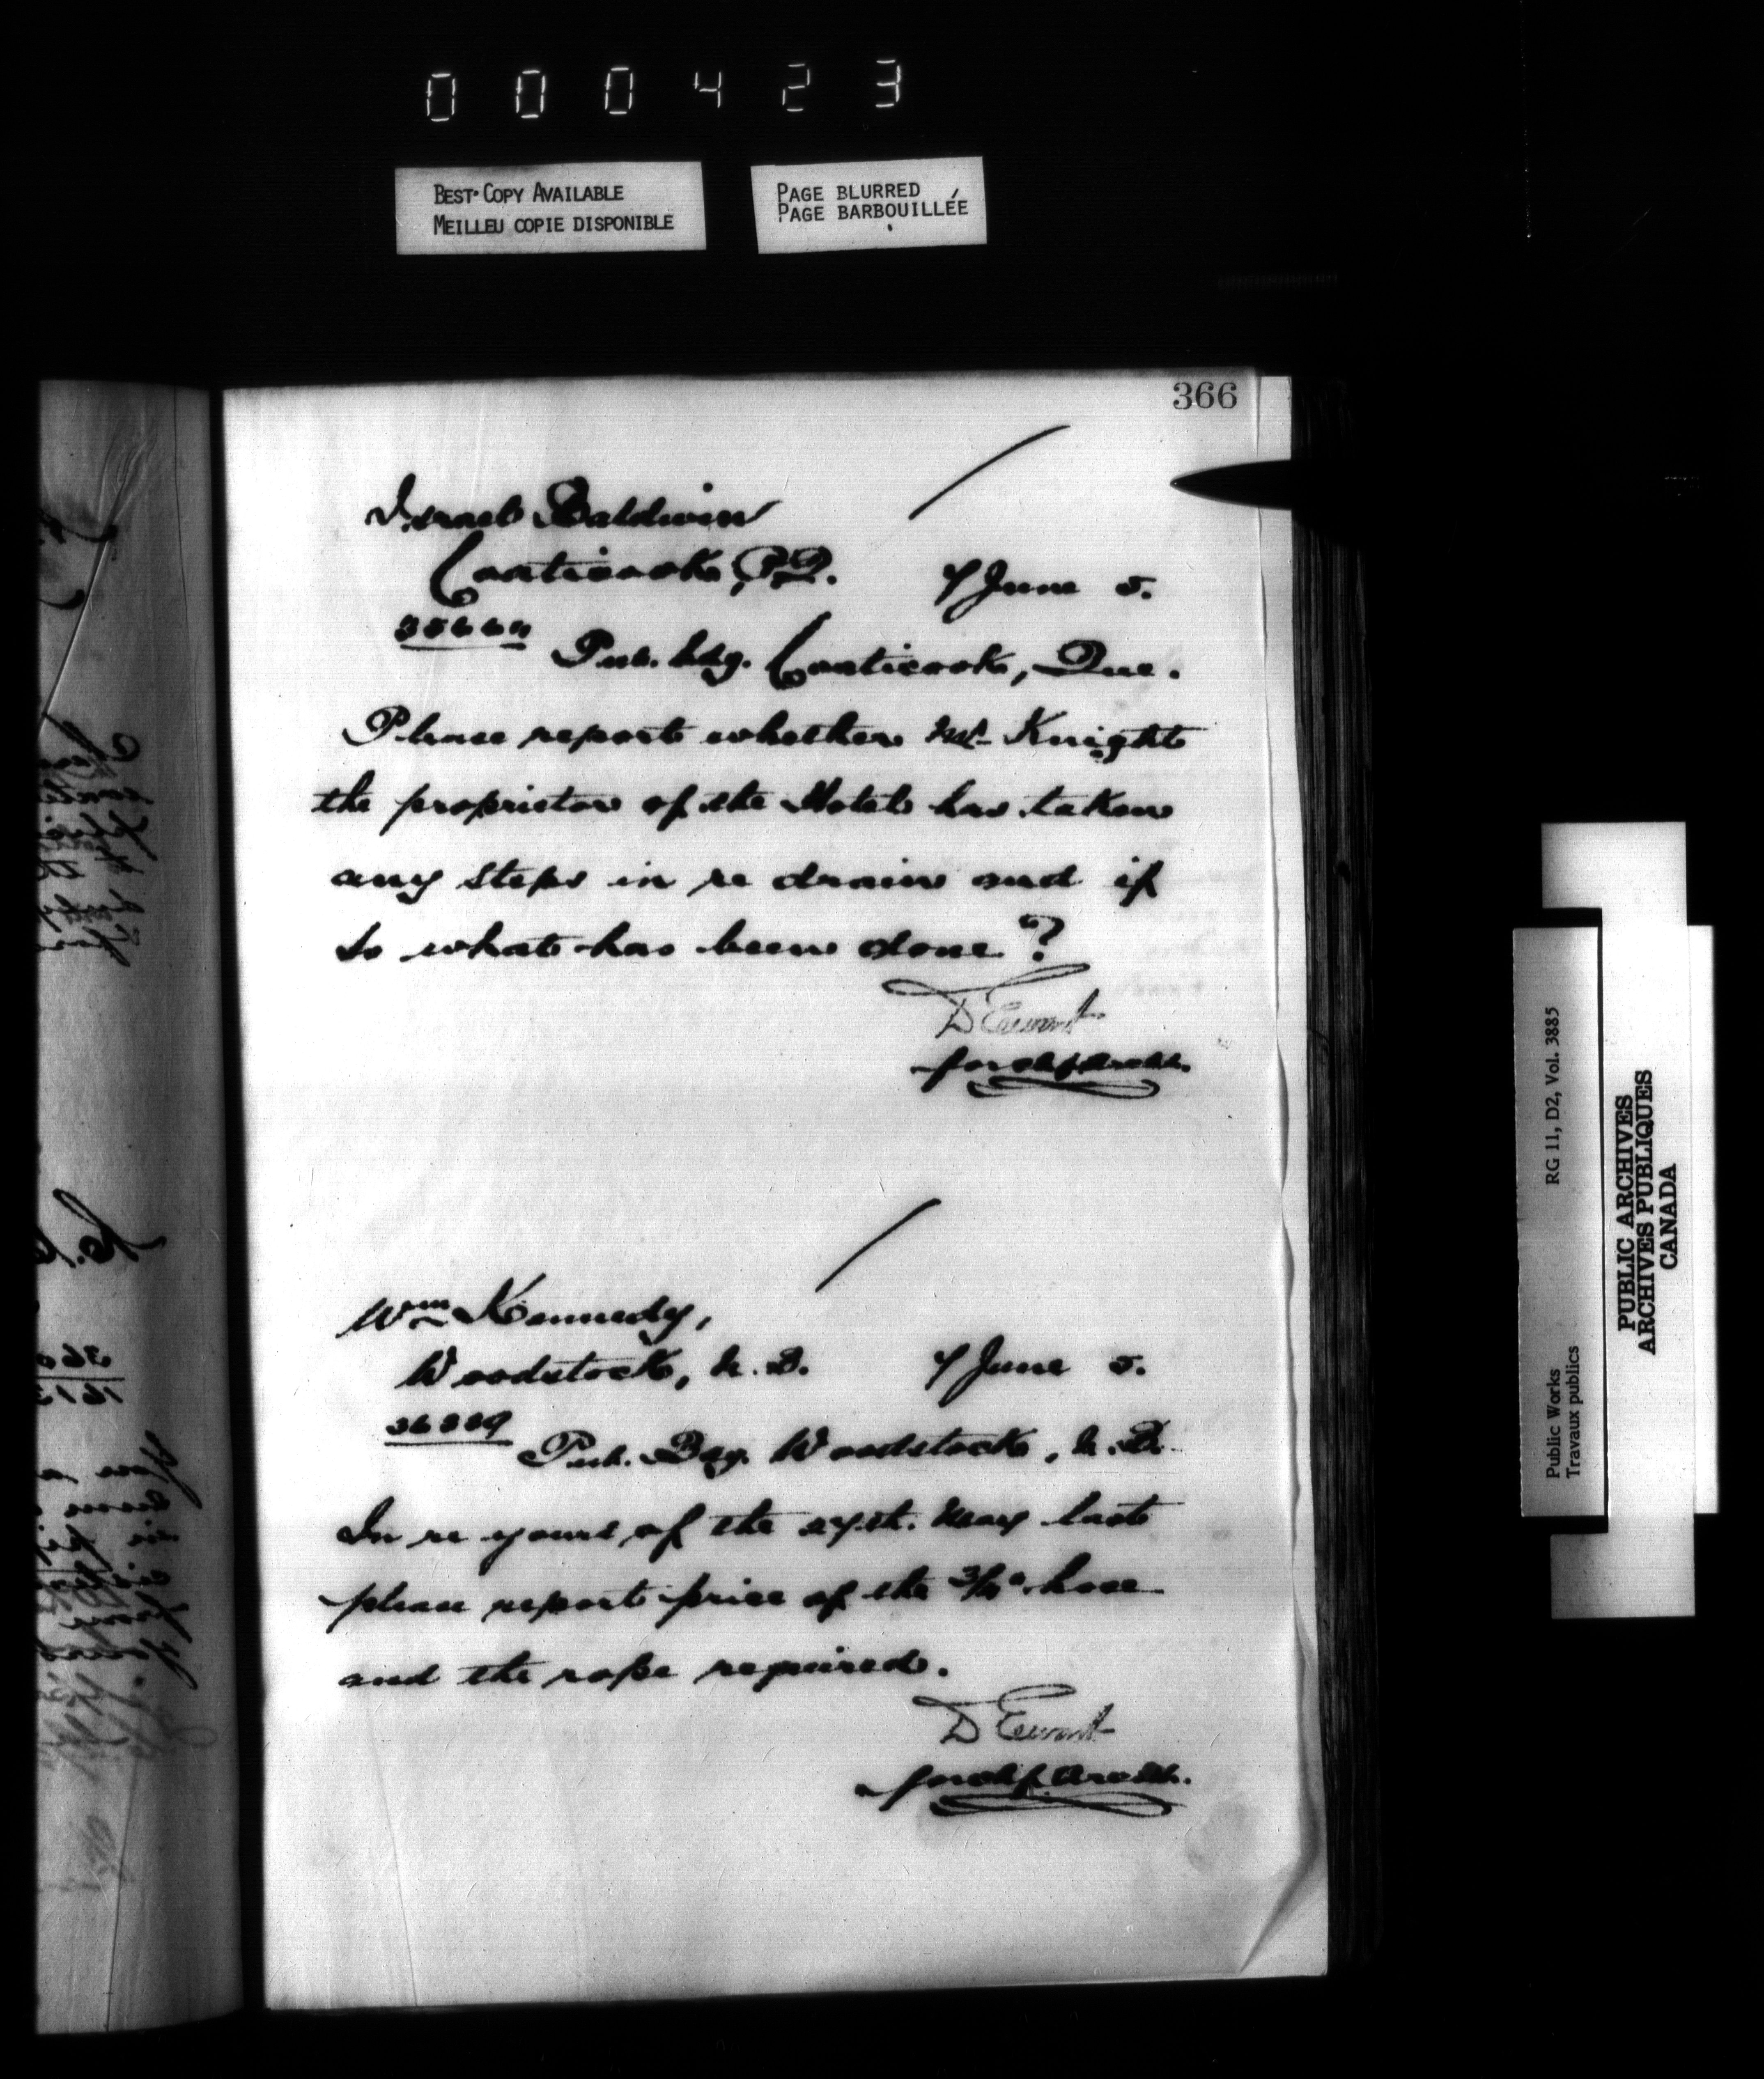 000423
BEST COPY AVAILABLE
MEILLEU COPIE DISPONIBLE
PAGE BLURRED
PAGE BARBOUILLÉE
366
Israel Baldwin
Coaticook, P.Q. 7 June 5.
Pub. bdg. Coaticook, Que.
Please report whether Mr Knight
the proprietor of the Hotel has taken
any steps in re drain and if
so what has been done?
D Ewart
Wm Kennedy,
Woodstock, N.B. 7 June 5.
Pub. Bdg. Woodstock, N.B.
In re yours of the 27th. May last
please report price of the 3/4" hose
and the rope required.
D Ewart
Public Works RG 11, D2, Vol. 3885
Travaux publics
PUBLIC ARCHIVES
ARCHIVES PUBLIQUES
CANADA